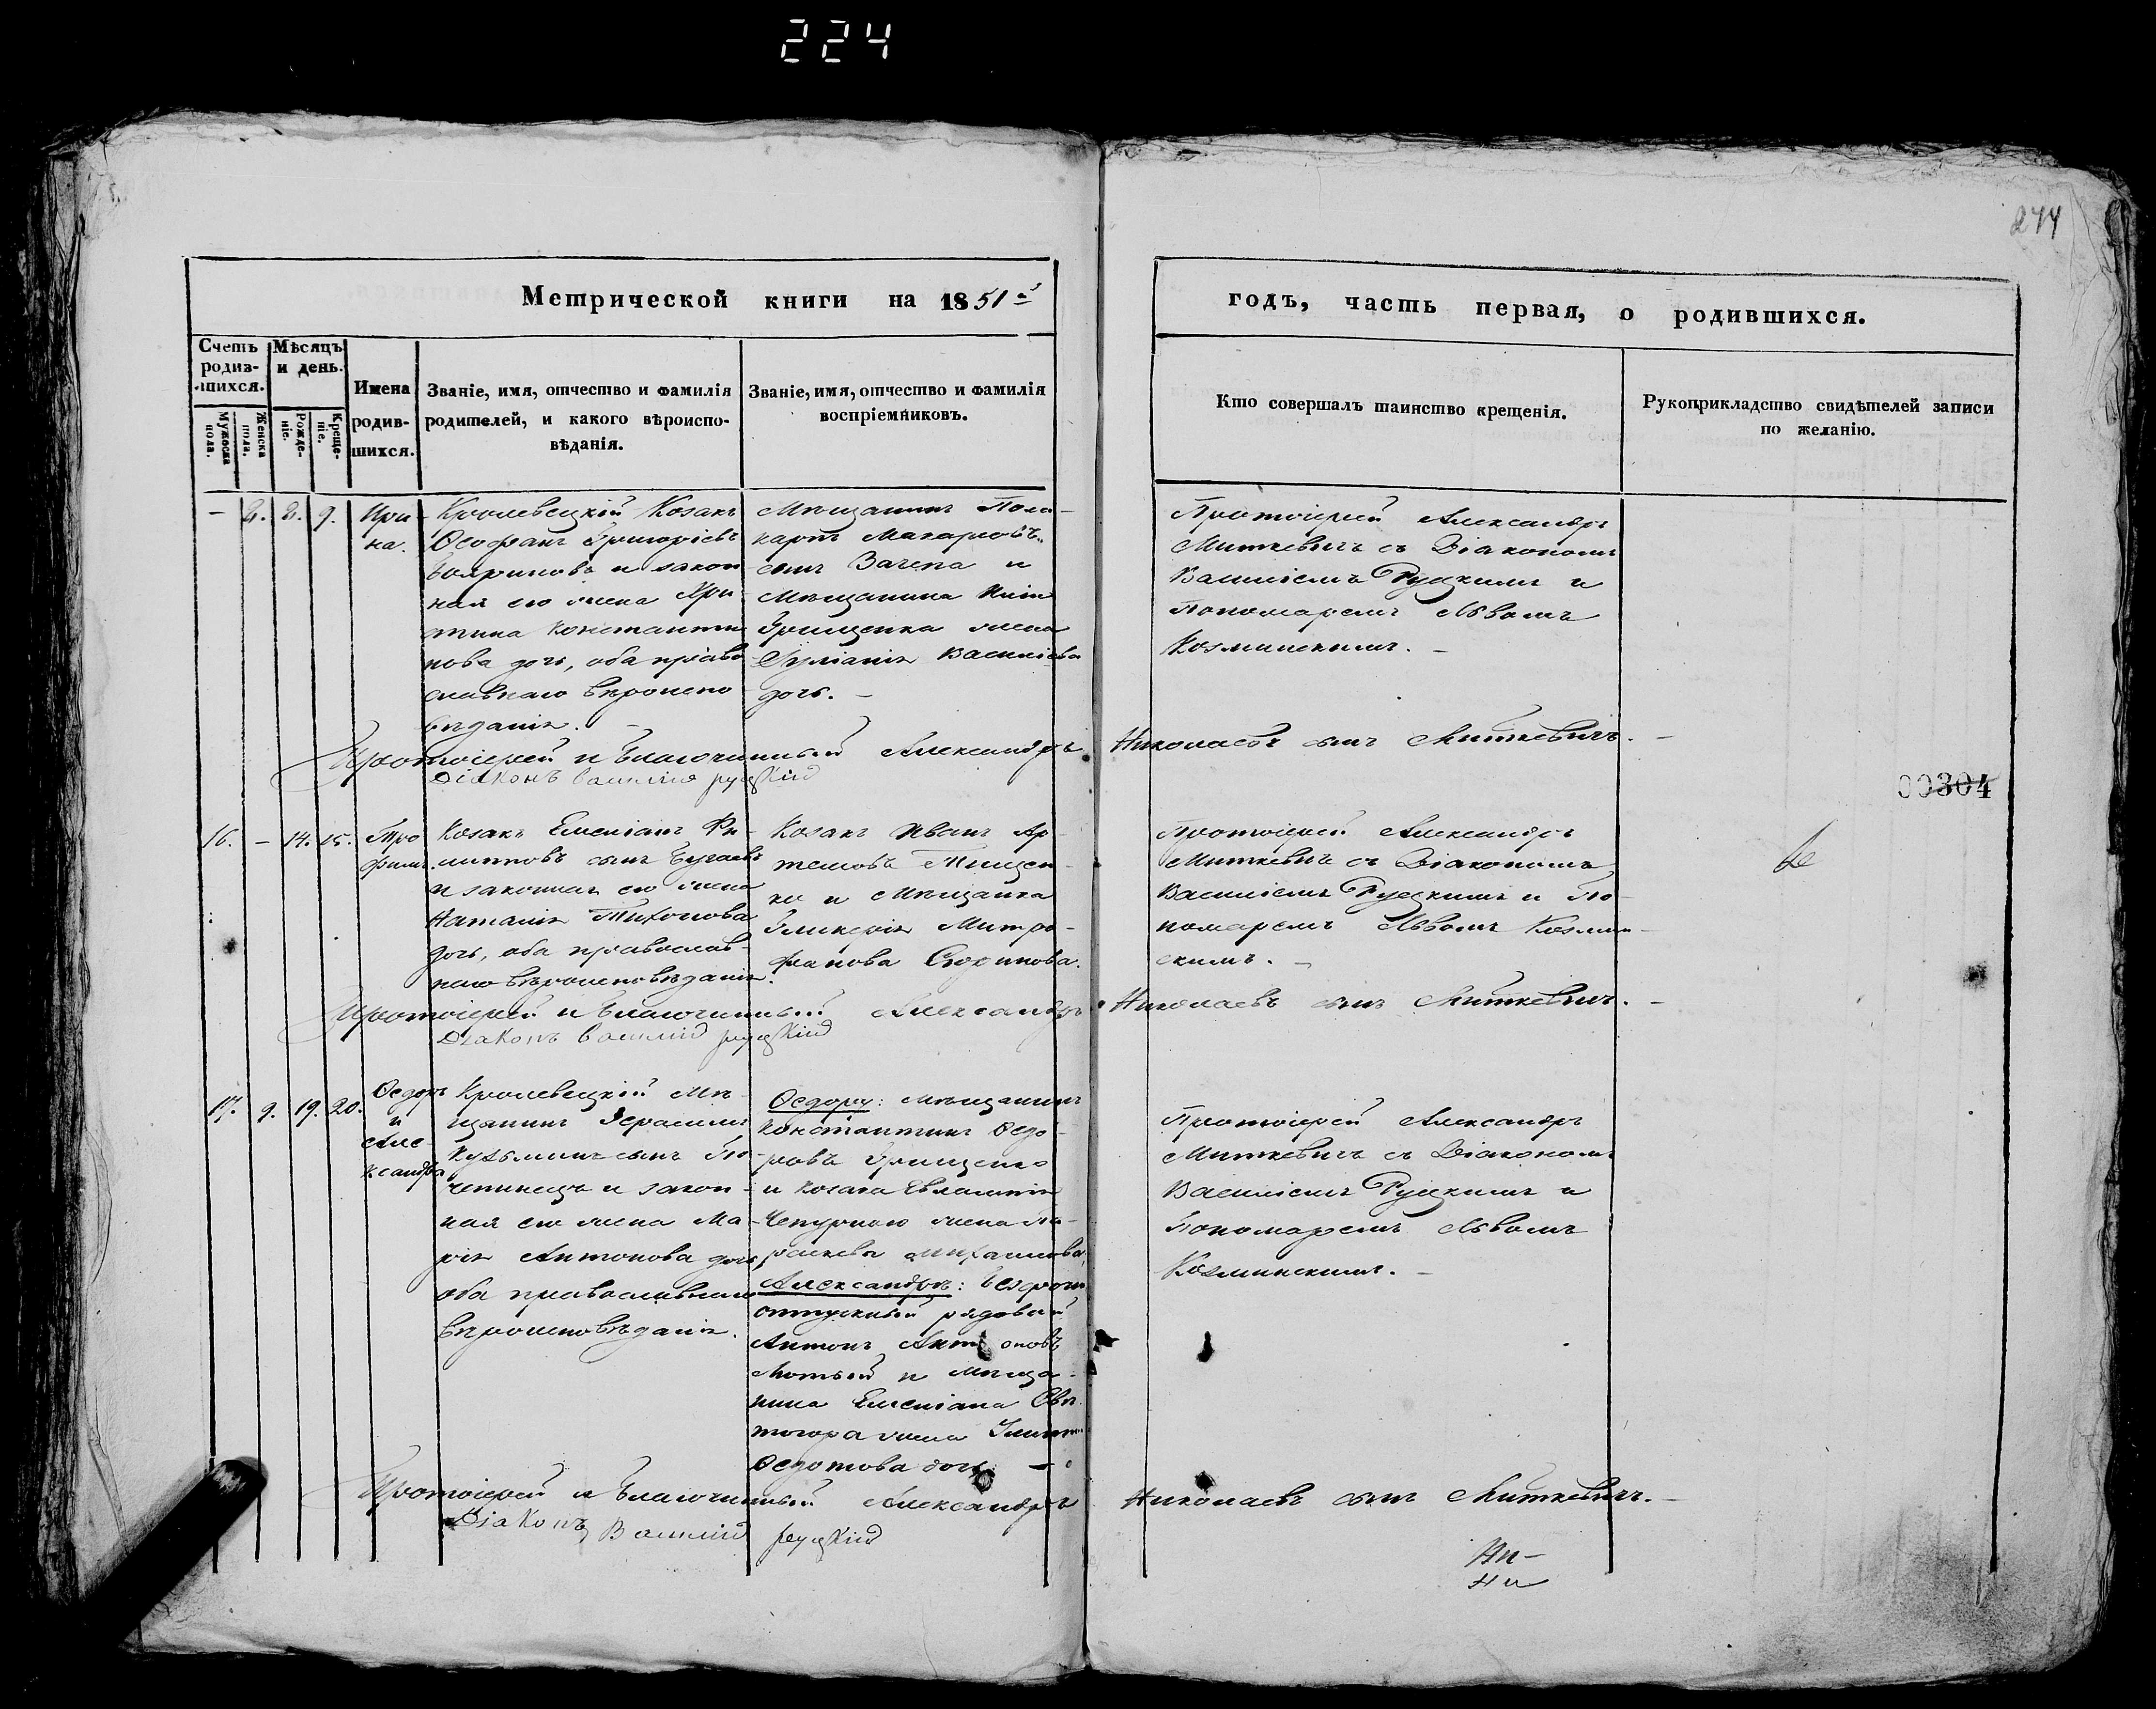 224
244
Метрической книги на 1851й
годъ, часть первая, о родившихся.
Счетъ родив-шихся.
Мужеска пола.
Женска пола.
Мѣсяцъ и день.
Рожде-ніе.
Креще-ніе.
Имена родив-шихся.
Званіе, имя, отчество и фамилія
родителей, и какого вѣроиспо-
вѣданія.
Званіе, имя, отчество и фамилія
воспріемниковъ.
Кто совершалъ таинство крещенія.
Рукоприкладство свидѣтелей записи
по желанію.
— 8. 8. 9.
Ири-
на.
Кролевецкій Козакъ
Ѳеофанъ Григоріевъ
и закон
ная его жена Хри-
стина Константи
нова дочь, оба право
славнаго вѣроиспо
вѣданія. —
Мѣщанинъ Поли-
карпъ Макаровъ
сынъ Зачепа и
Мѣщанина
Грищенка жена
Іуліанія Василіева
дочь. —
Протоіерей Александръ
Миткевичъ съ Діакономъ
Василіемъ Руцкимъ и
Пономаремъ Львомъ
Козминскимъ. —
Протоіерей и Благочинный Александръ Николаевъ сынъ Миткевичъ. —
Діаконъ Василій Руцкій
00304
16. — 14. 15.
Тро
фимъ.
Козакъ Емеліанъ Фи-
липповъ сынъ Бугаевъ
и законная его жена
Наталія Тихонова
дочь, оба православ-
наго вѣроисповѣданія.
Козакъ Иванъ Ар-
темовъ Тищен-
ко и Мѣщанка
Гликерія Митро-
фанова
Протоіерей Александръ
Миткевичъ съ Діакономъ
Василіемъ Руцкимъ и По-
номаремъ Львомъ Козмин-
скимъ. —
Протоіерей и Благочинный Александръ Николаевъ сынъ Миткевичъ. —
Діаконъ Василій Руцкій
17. 9. 19. 20.
Ѳедоръ
и
Але-
ксандра
Кролевецкій Мѣ-
щанинъ Герасимъ
Кузьминъ сынъ По-
чепинецъ и закон-
ная его жена Ма-
рія Антонова дочь,
оба православнаго
вѣроисповѣданія.
Ѳедору: Мѣщанинъ
Константинъ Ѳедо-
ровъ Грищенко
и козака Евлампія
Чепурнаго жена Па-
раскева Михаилова,
Александрѣ: безсрочно
отпускный рядовый
Антонъ Антоновъ
Лютый и мѣща-
нина Емеліана
жена
Ѳедотова дочь. —
Протоіерей Александръ
Миткевичъ съ Діакономъ
Василіемъ Руцкимъ и
Пономаремъ Львомъ
Козминскимъ. —
Протоіерей и Благочинный Александръ Николаевъ сынъ Миткевичъ. —
Діаконъ Василій Руцкій